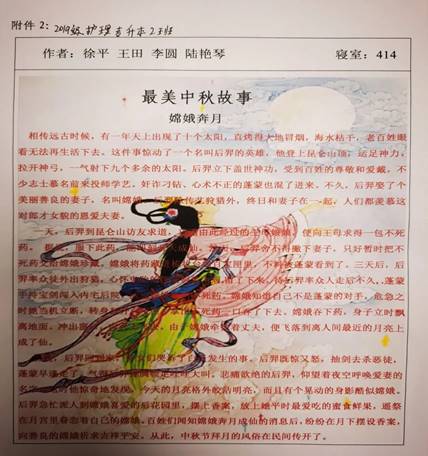 附件2：2019级护理专升本2班
作者：徐平 王田 李圆 陆艳琴 寝室：414
最美中秋故事
嫦娥奔月
相传远古时候，有一年天上出现了十个太阳，直烤得大地冒烟，海水枯干，老百姓眼
看无法再生活下去。这件事惊动了一个名叫后羿的英雄，他登上昆仑山顶，运足神力，
拉开神弓，一气射下九个多余的太阳。后羿立下盖世神功，受到百姓的尊敬和爱戴，不
少志士慕名前来投师学艺。奸诈刁钻、心术不正的蓬蒙也混了进来。不久，后羿娶了个
美丽善良的妻子，名叫嫦娥。后羿除传艺狩猎外，终日和妻子在一起，人们都羡慕这
对郎才女貌的恩爱夫妻。
一天，后羿到昆仑山访友求道，由此经过的王母娘娘，便向王母求得一包不死
药。服下此药，成仙。后羿舍不得撇下妻子，只好暂时把不
死药交给嫦娥珍藏。嫦娥将药藏进梳妆台的百宝匣里，不料被蓬蒙看到了。三天后，后
羿率众徒外出狩猎，心怀鬼胎的留了下来。待后羿率众人走后不久，蓬蒙
手持宝剑闯入内宅后院，不死药。嫦娥知道自己不是蓬蒙的对手，危急之
时她当机立断，转身拿出不死药一口吞了下去。嫦娥吞下药，身子立时飘
离地面、冲出窗口，由于嫦娥牵挂着丈夫，便飞落到离人间最近的月亮上
成了仙。
后羿回到家，侍女们哭诉了白天发生的事。后羿既惊又怒，抽剑去杀恶徒，
蓬蒙早逃走了，气得后羿捶胸顿足哇哇大叫。悲痛欲绝的后羿，仰望着夜空呼唤爱妻的
名字，这时他惊奇地发现，今天的月亮格外皎洁明亮，而且有个晃动的身影酷似嫦娥。
后羿急忙派人到嫦娥喜爱的后花园里，摆上香案，放上她平时最爱吃的蜜食鲜果，遥祭
在月宫里眷恋着自己的嫦娥。百姓们闻知嫦娥奔月成仙的消息后，纷纷在月下摆设香案，
向善良的嫦娥祈求吉祥平安。从此，中秋节拜月的风俗在民间传开了。